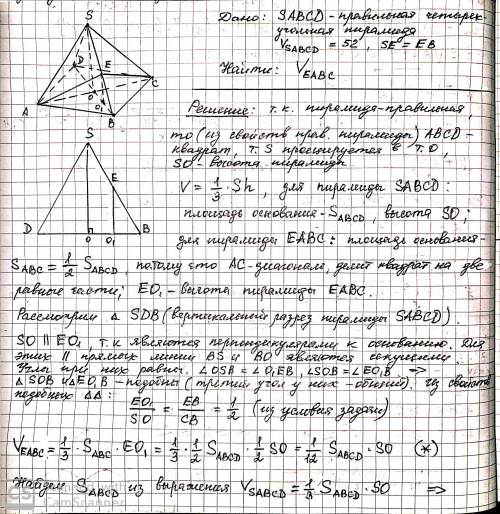 Дано: SABCD - правильная четырех-
угольная пирамида
V SABCD = 52, SE = EB
Найти: V EABC
S
D
E
C
A
O
O₁
B
Решение: т.к. пирамида-правильная,
то (из свойств прав. пирамиды) ABCD-
квадрат, т. S проецируется в т. O,
SO - высота пирамиды
S
E
D
O
O₁
B
V = 1/3 · Sh, для пирамиды SABCD:
площадь основания - S ABCD, высота SO;
для пирамиды EABC: площадь основания-
S ABC = 1/2 S ABCD, потому что AC-диагональ, делит квадрат на две
равные части; EO₁ - высота пирамиды EABC.
Рассмотрим Δ SDB (вертикальный разрез пирамиды SABCD).
SO || EO₁, т.к. являются перпендикулярами к основанию. Для
этих || прямых линии BS и BO являются секущими.
Углы при них равны. ∠OSB = ∠O₁EB, ∠SOB = ∠EO₁B, =>
Δ SOB и Δ EO₁B - подобны (третий угол у них - общий). Из свойств
подобных ΔΔ:
EO₁/SO = EB/CB = 1/2 (из условия задачи)
V EABC = 1/3 · S ABC · EO₁ = 1/3 · 1/2 S ABCD · 1/2 SO = 1/12 S ABCD · SO (*)
Найдем S ABCD из выражения V SABCD = 1/3 · S ABCD · SO =>
CS
CamScanner